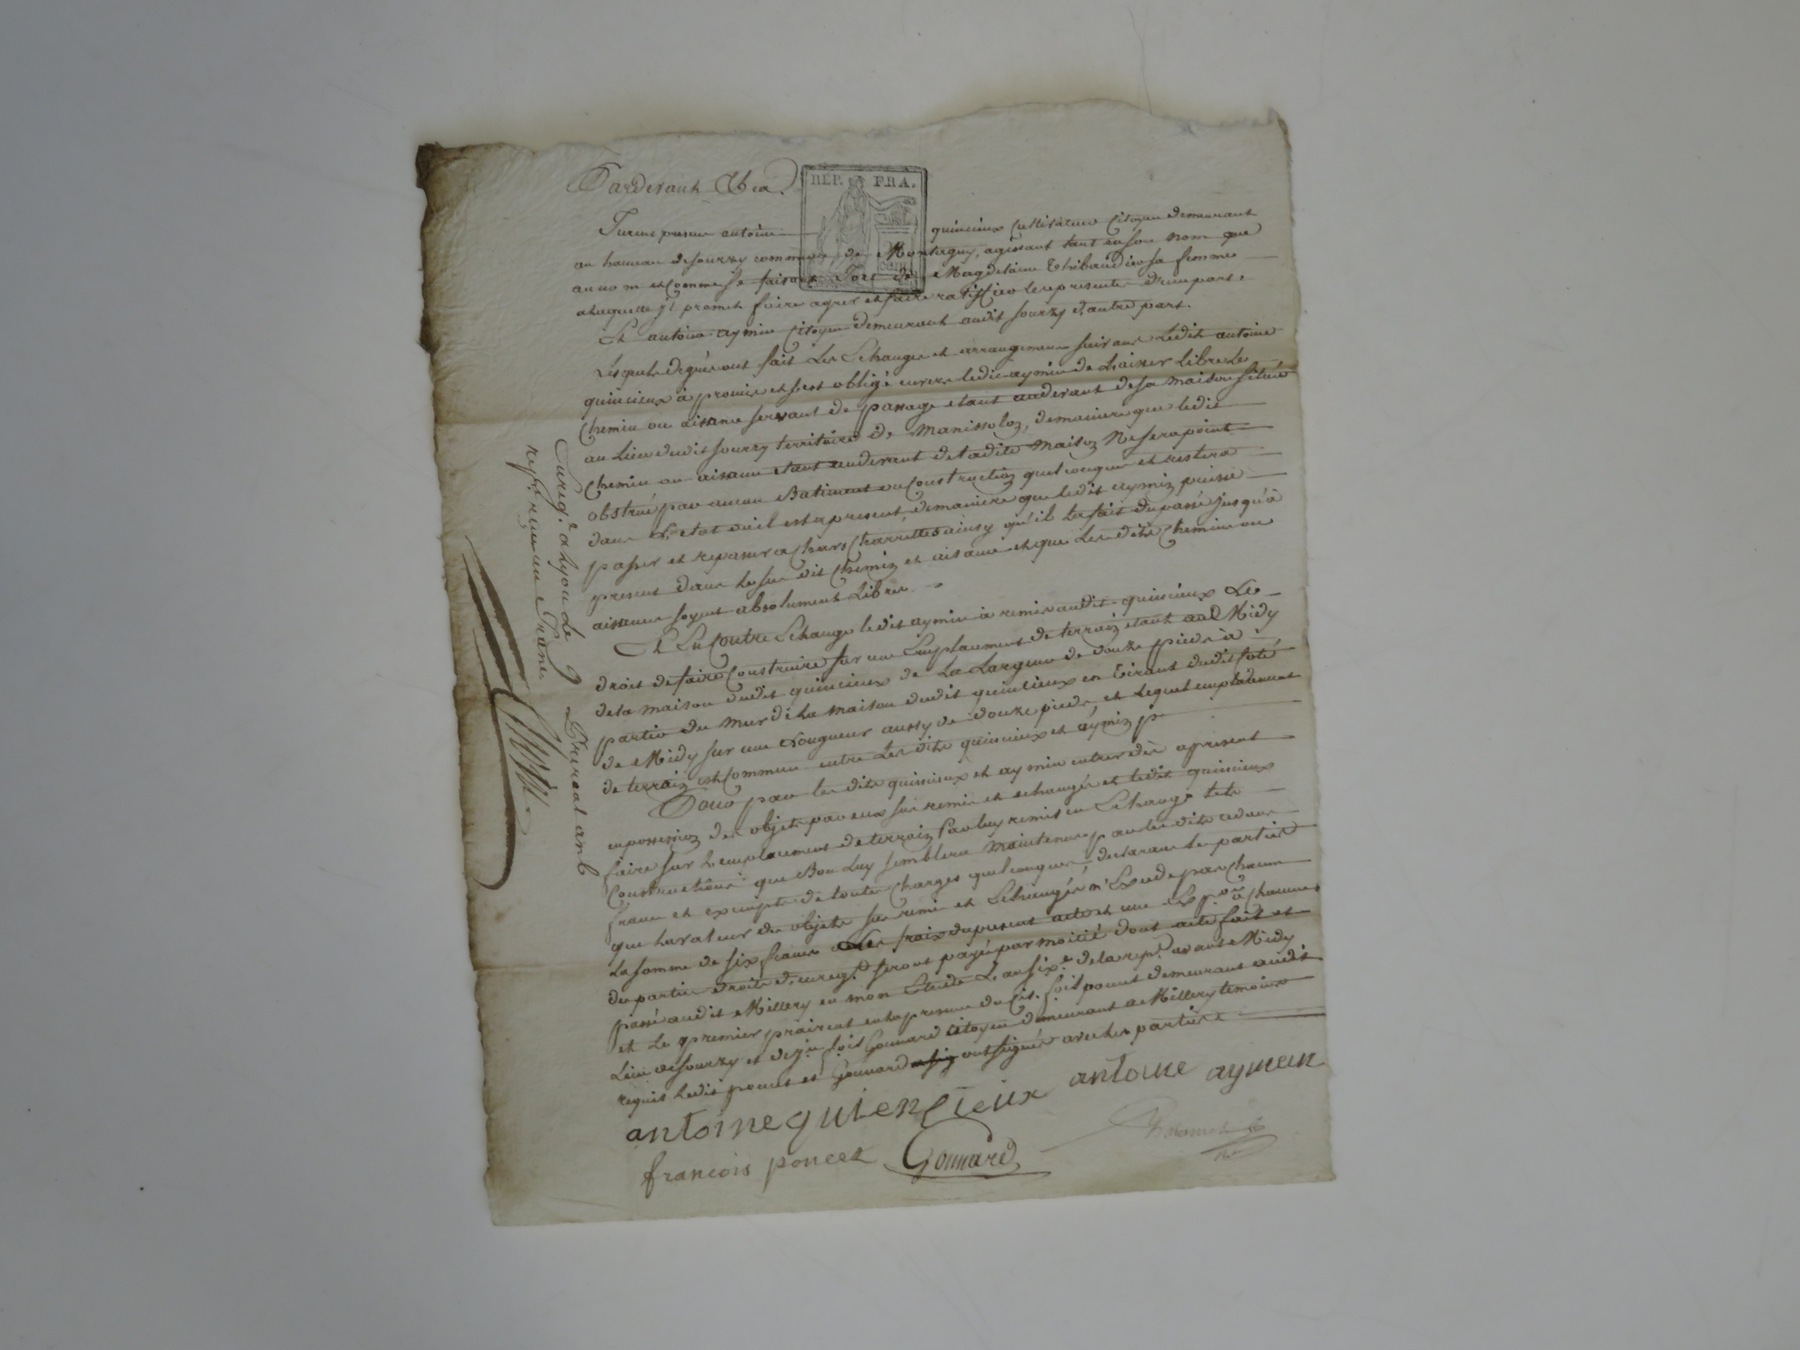 Pardevant &ca.
REP. FRA.
Furent presens antoine quincieux Cultivateur Citoyen demeurant
au hameau de sourzy commune de Montagny, agissant tant en son nom que
au nom et comme se faisant fort de Magdelaine Thibaudier sa femme
a laquelle il promet faire agréer et faire ratiffier le represente d'une part.
Et antoine aymin Citoyen demeurant audit sourzy d'autre part.
Lesquels de gré ont fait Les Echanges et arrangemens suivans Ledit antoine
quincieux à promis et s'est obligé envers ledit aymin de Laisser libre Le
Chemin ou aisance servant de passage etant audevant de sa maison située
au Lieu dudit sourzy territoire de Manissoloz, demaniere que ledit
Chemin ou aisance etant audevant de ladite maison Ne sera point
obstrué par aucun Batiment ou Construction quelconque et restera
dans L'etat ou il est apresent, demaniere que ledit aymin puisse
passer et repasser a Chars Charrettes ainsy qu'il La fait du passé jusqu'à
present dans le sus dit Chemin et aisance et que Lesdits Chemin ou
aisance soyent absolument Libres.
Et En Contre Echange ledit aymin à remis audit quincieux Le
droit de faire Construire sur un Emplacement de terrain etant au Midy
de la maison dudit quincieux de La Largeur de douze pieds à
partir du mur de La maison dudit quincieux en tirant dudit Coté
de Midy sur une Longueur aussy de douze pieds, et Lequel emplacement
de terrain est Commun entre Les dits quincieux et aymin
Pour par les dits quincieux et aymin entrer dès apresent
en possession des objets par eux sus remis et echangés et ledit quincieux
faire sur L'emplacement de terrain a luy remis en Echange telle
Construction que Bon Luy semblera Maintenus par les dits
franc et exempts de toutes Charges quelconques, declarant les parties
que la valeur des objets sus remis et Echangés n'Exede pas chacun
La somme de six francs Les frais du present acte et une Exp.on à chacune
des parties droits d'enreg.t seront payés par moitié dont acte fait et
passé audit Millery en mon Etude L'an six.e de la rep.e avant Midy
et Le premier prairial en la presence du Cit. fçois poncet demeurant audit
Lieu de sourzy et de fçois Gonnard Citoyen demeurant a Millery temoins
requis Ledit poncet et Gonnard ont signé avec les parties
antoine quiencieux antoine aymein
francois poncet Gonnard
Enreg.é a Lyon Le 9 Prairial an 6
reçu un franc